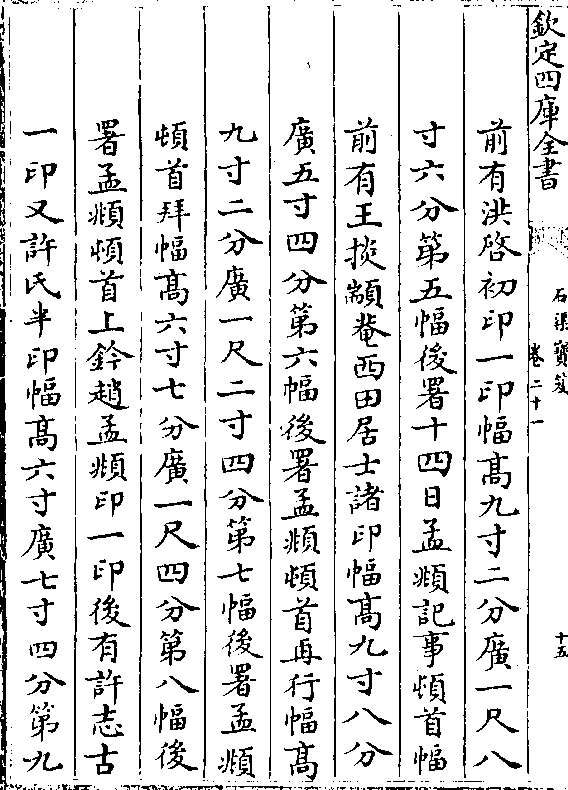 欽定四庫全書
石渠寶笈
卷二十一
十五
前有洪啓初印一印幅髙九寸二分廣一尺八
寸六分第五幅後署十四日孟頫記事頓首幅
前有王掞顓菴西田居士諸印幅髙九寸八分
廣五寸四分第六幅後署孟頫頓首再行幅髙
九寸二分廣一尺二寸四分第七幅後署孟頫
頓首拜幅髙六寸七分廣一尺四分第八幅後
署孟頫頓首上鈐趙孟頫印一印後有許志古
一印又許氏半印幅髙六寸廣七寸四分第九